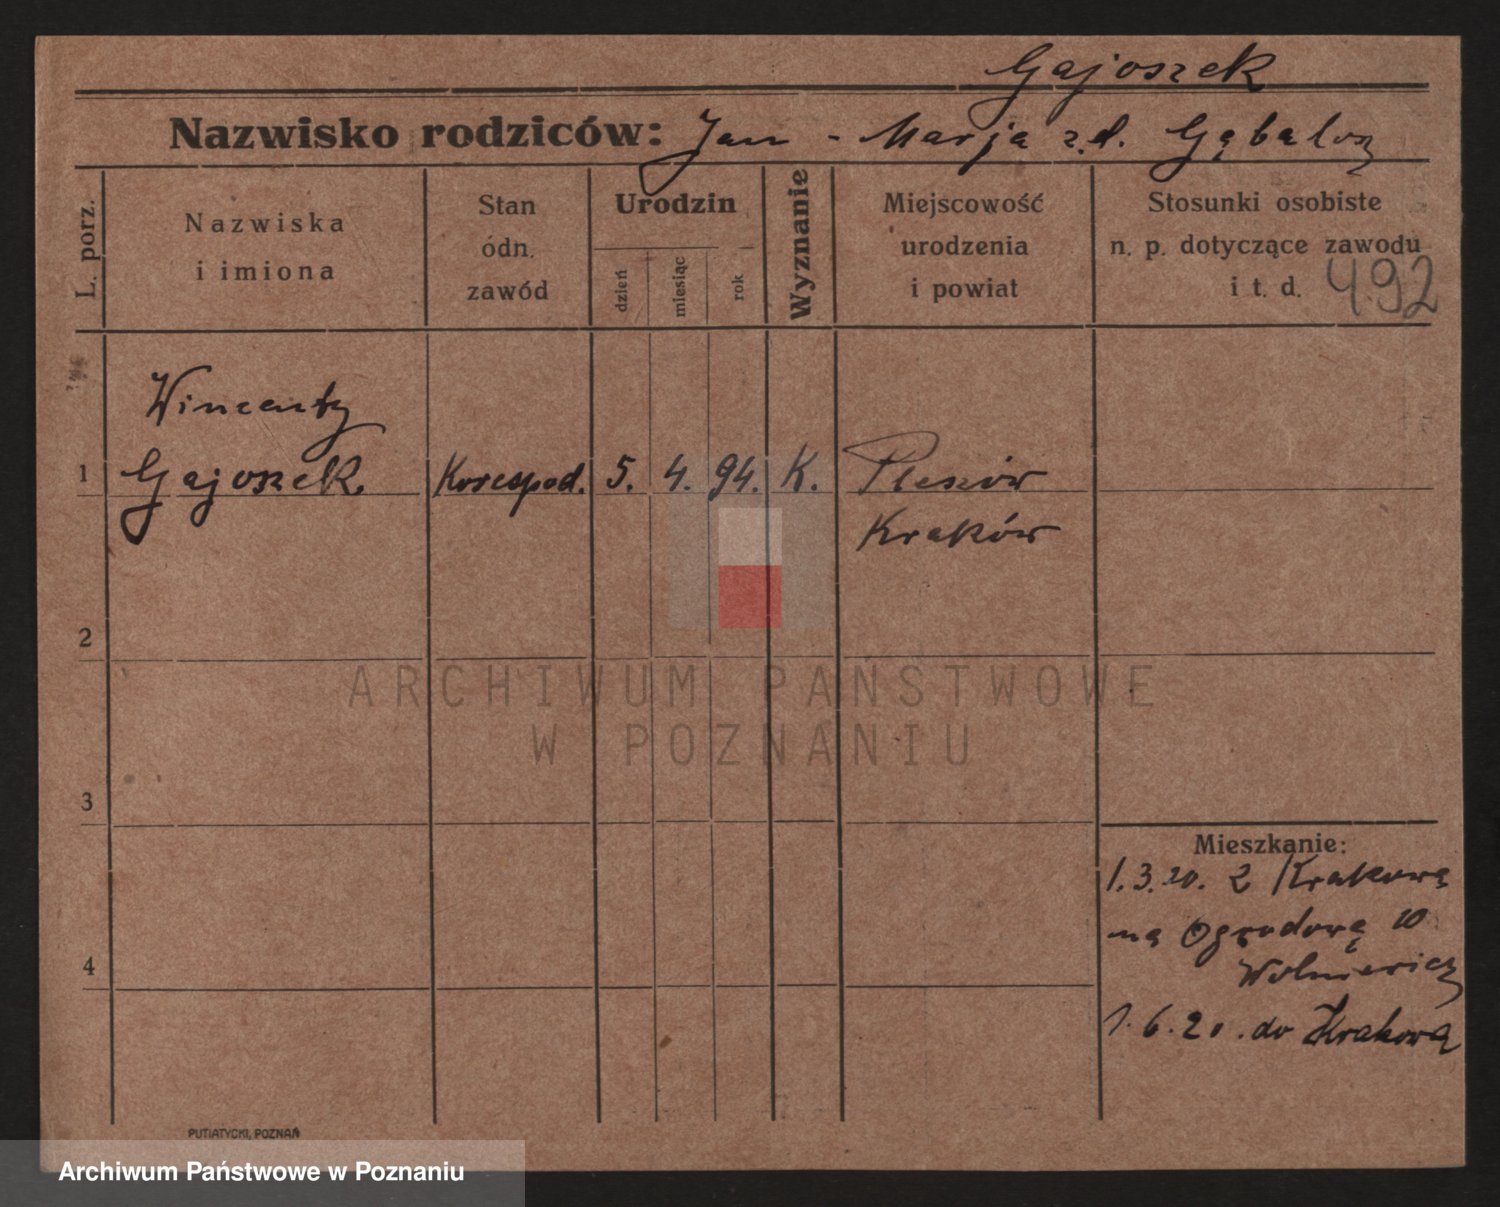 Gajoszek
Nazwisko rodziców: Jan - Marja z.d. Gąbalosz
L. porz.
Nazwiska
i imiona
Stan
odn.
zawód
Urodzin
dzień
miesiąc
rok
Wyznanie
Miejscowość
urodzenia
i powiat
Stosunki osobiste
n. p. dotyczące zawodu
i t. d. 492
Wincenty
1 Gajoszek. Korespod. 5. 4. 94. K. Pleszów
Kraków
2
ARCHIWUM PAŃSTWOWE
W POZNANIU
3
Mieszkanie:
1.3.20. z Krakowa
na Ogrodową 10
4
Wolniewicz
1.6.20. do Krakowa
PUTIATYCKI, POZNAŃ
Archiwum Państwowe w Poznaniu